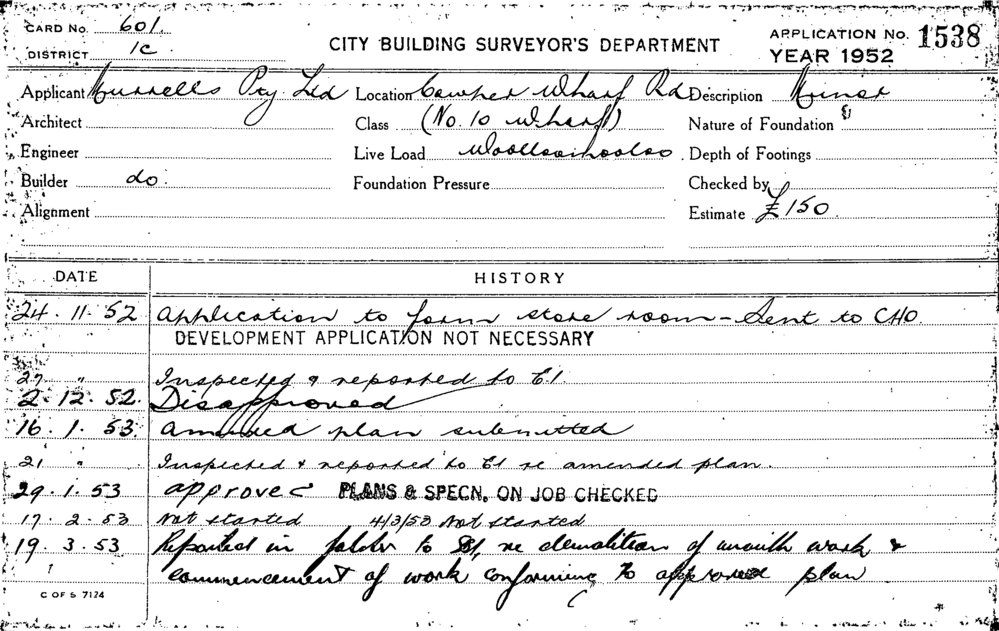 CARD No. 601.
DISTRICT 1c
CITY BUILDING SURVEYOR'S DEPARTMENT
APPLICATION No. 1538
YEAR 1952
Applicant Murrells Pty Ltd Location Cowper Wharf Rd Description Minor
Architect Class (No. 10 Wharf) Nature of Foundation
Engineer Live Load Woolloomooloo Depth of Footings
Builder do. Foundation Pressure Checked by
Alignment Estimate £150
DATE HISTORY
24.11.52 Application to form store room - Sent to CHO.
DEVELOPMENT APPLICATION NOT NECESSARY
27 " Inspected & reported to E1.
2.12.52. Disapproved
16.1.53. Amended plan submitted
21 " Inspected & reported to E1 re amended plan.
29.1.53 approved PLANS & SPECN. ON JOB CHECKED
17.2.53 Not started 4/3/53 Not started
19.3.53 Reported in folder to re demolition of work &
commencement of work conforming to approved plan
C OF S 7124